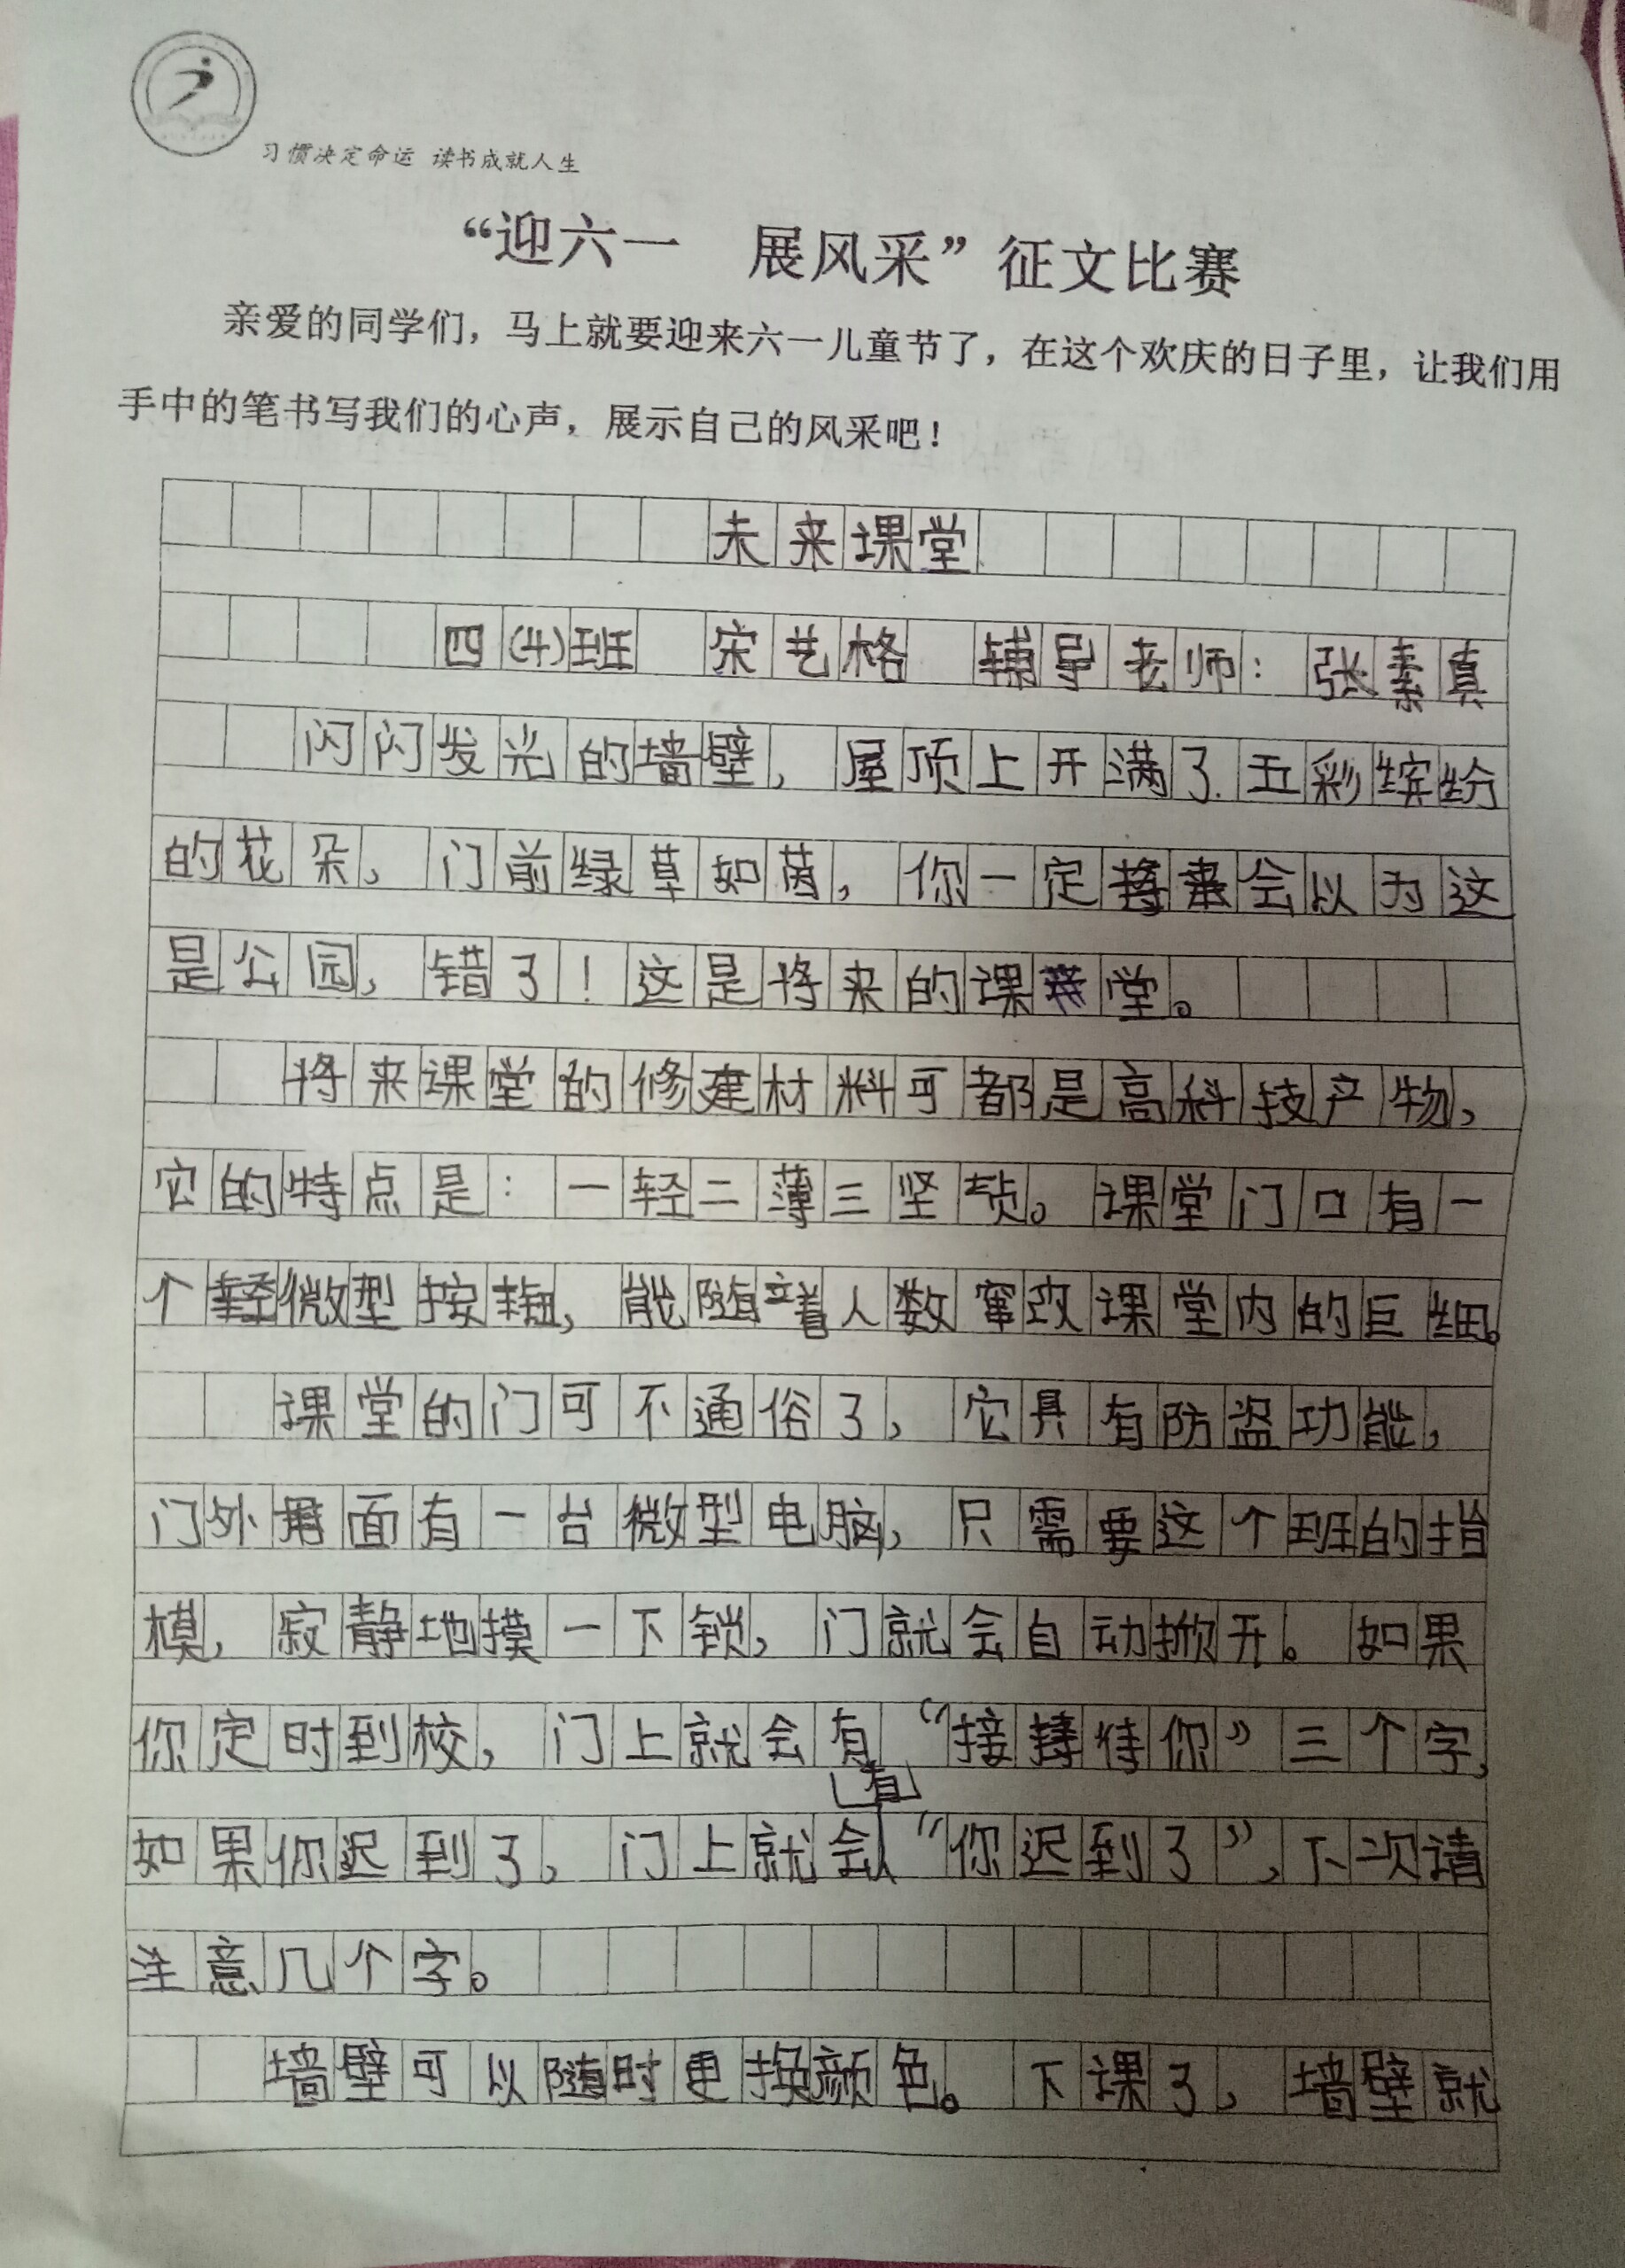 习惯决定命运 读书成就人生
“迎六一 展风采”征文比赛
亲爱的同学们，马上就要迎来六一儿童节了，在这个欢庆的日子里，让我们用
手中的笔书写我们的心声，展示自己的风采吧！
未来课堂
四(4)班 宋艺格 辅导老师：张素真
闪闪发光的墙壁，屋顶上开满了五彩缤纷
的花朵，门前绿草如茵，你一定将来会以为这
是公园，错了！这是将来的课堂。
将来课堂的修建材料可都是高科技产物，
它的特点是：一轻二薄三坚。课堂门口有一
个微型按，能随着人数窜改课堂内的巨细。
课堂的门可不通俗了，它具有防盗功能，
门外面有一台微型电脑，只需要这个班的指
模，寂静地摸一下锁，门就会自动掀开。如果
你定时到校，门上就会有“接待你”三个字，
如果你迟到了，门上就会有“你迟到了”，下次请
注意几个字。
墙壁可以随时更换颜色。下课了，墙壁就